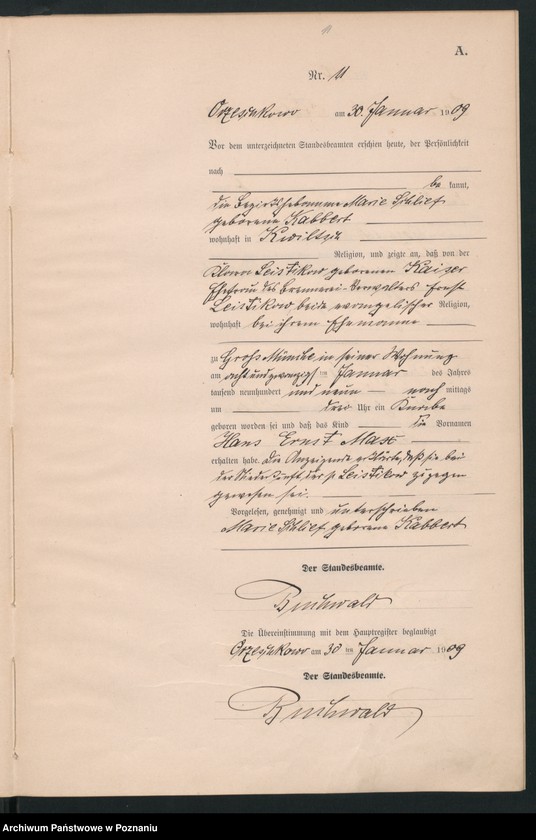 A.
Nr. 11
Orzeschkowo am 30. Januar 1909
Vor dem unterzeichneten Standesbeamten erschien heute, der Persönlichkeit
nach
be kannt,
die Bezirkshebamme Marie Schlief
geborene Kabbert
wohnhaft in Kwiltsch
Religion, und zeigte an, daß von der
Leistikow geborenen Kaiser
Ehefrau des Brennerei-Verwalters Ernst
Leistikow, beide evangelischer Religion,
wohnhaft bei ihrem Ehemanne
zu Groß Münche in seiner Wohnung
am acht und zwanzigsten Januar des Jahres
tausend neunhundert und neun nach mittags
um drei Uhr ein Knabe
geboren worden sei und daß das Kind die Vornamen
Hans Ernst Max
erhalten habe. Die Anzeigende erklärte, daß sie bei
der Niederkunft der p. Leistikow zugegen
gewesen sei.
Vorgelesen, genehmigt und unterschrieben
Marie Schlief geborene Kabbert
Der Standesbeamte.
Buchwald
Die Übereinstimmung mit dem Hauptregister beglaubigt
Orzeschkowo am 30 ten Januar 1909
Der Standesbeamte.
Buchwald
Archiwum Państwowe w Poznaniu